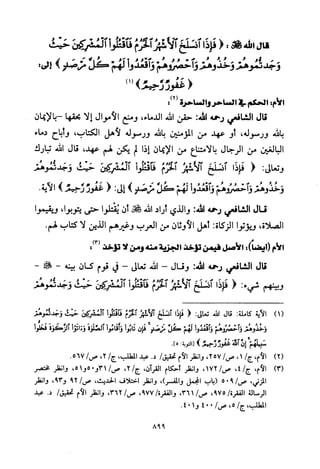 قال الله ﷻ: ﴿ فَإِذَا ٱنسَلَخَ ٱلْأَشْهُرُ ٱلْحُرُمُ فَٱقْتُلُوا۟ ٱلْمُشْرِكِينَ حَيْثُ
وَجَدتُّمُوهُمْ وَخُذُوهُمْ وَٱحْصُرُوهُمْ وَٱقْعُدُوا۟ لَهُمْ كُلَّ مَرْصَدٍ ﴾ إلى:
﴿ غَفُورٌ رَّحِيمٌ ﴾ (١)
الأم: الحكم في الساحر والساحرة (٢):
قال الشافعي رحمه الله: حقن الله الدماء، ومنع الأموال إلا بحقها -بالإيمان
بالله ورسوله، أو عهد من المؤمنين بالله ورسوله لأهل الكتاب، وأباح دماء
البالغين من الرجال بالامتناع من الإيمان إذا لم يكن لهم عهد، قال الله تبارك
وتعالى: ﴿ فَإِذَا ٱنسَلَخَ ٱلْأَشْهُرُ ٱلْحُرُمُ فَٱقْتُلُوا۟ ٱلْمُشْرِكِينَ حَيْثُ وَجَدتُّمُوهُمْ
وَخُذُوهُمْ وَٱحْصُرُوهُمْ وَٱقْعُدُوا۟ لَهُمْ كُلَّ مَرْصَدٍ ﴾ إلى: ﴿ غَفُورٌ رَّحِيمٌ ﴾ الآية.
قال الشافعي رحمه الله: والذي أراد الله ﷻ أن يُقتلوا حتى يتوبوا، ويقيموا
الصلاة، ويؤتوا الزكاة: أهل الأوثان من العرب وغيرهم الذين لا كتاب لهم.
الأم (أيضاً): الأصل فيمن تؤخذ الجزية منه ومن لا تؤخذ (٣):
قال الشافعي رحمه الله: وقال - الله تعالى - في قوم كان بينه - ﷺ -
وبينهم شيء: ﴿ فَإِذَا ٱنسَلَخَ ٱلْأَشْهُرُ ٱلْحُرُمُ فَٱقْتُلُوا۟ ٱلْمُشْرِكِينَ حَيْثُ وَجَدتُّمُوهُمْ
(١) الآية كاملة: قال الله تعالى: ﴿ فَإِذَا ٱنسَلَخَ ٱلْأَشْهُرُ ٱلْحُرُمُ فَٱقْتُلُوا۟ ٱلْمُشْرِكِينَ حَيْثُ وَجَدتُّمُوهُمْ
وَخُذُوهُمْ وَٱحْصُرُوهُمْ وَٱقْعُدُوا۟ لَهُمْ كُلَّ مَرْصَدٍ فَإِن تَابُوا۟ وَأَقَامُوا۟ ٱلصَّلَوٰةَ وَءَاتَوُا۟ ٱلزَّكَوٰةَ فَخَلُّوا۟
سَبِيلَهُمْ إِنَّ ٱللَّهَ غَفُورٌ رَّحِيمٌ ﴾ [التوبة: ٥].
(٢) الأم، ج/١، ص/٢٥٧، وانظر الأم تحقيق/ د. عبد المطلب، ج/٢، ص/٥٦٧.
(٣) الأم، ج/٤، ص/١٧٢، وانظر أحكام القرآن، ج/٢، ص/٣١ و٥٠ و٥١، وانظر مختصر
المزني، ص/٥٠٩ (باب المجمل والمفسر)، وانظر اختلاف الحديث، ص/٩٢ و٩٣، وانظر
الرسالة الفقرة/ ٩٧٥، ص/٣٦١، والفقرة/ ٩٧٧، ص/٣٦٢، وانظر الأم تحقيق/ د. عبد
المطلب، ج/٥، ص/٤٠٠ و٤٠١.
٨٩٩